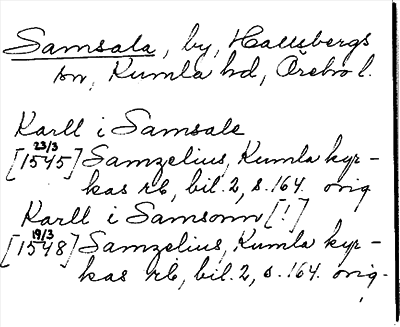 Samsala, by, Hallsbergs
sn, Kumla hd, Örebro l.
Karll i Samsale
[1545 23/3] Samzelius, Kumla kyr-
kas rb, bil. 2, s. 164. orig
Karll i Samsonn [!]
[1548 19/3] Samzelius, Kumla kyr-
kas rb, bil. 2, s. 164. orig.